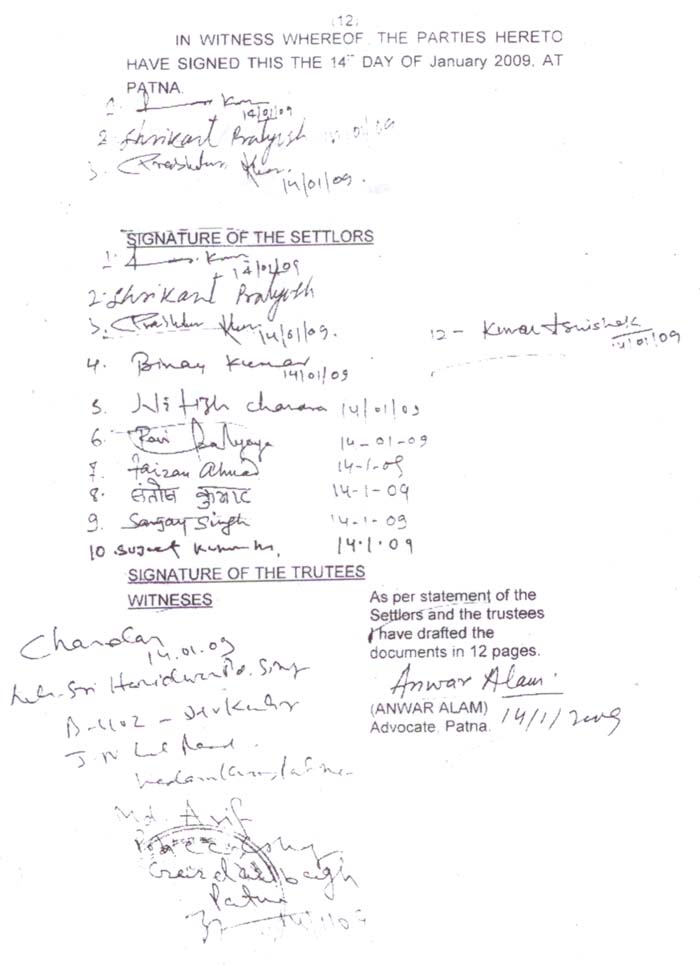 (12)
IN WITNESS WHEREOF THE PARTIES HERETO
HAVE SIGNED THIS THE 14 DAY OF January 2009, AT
PATNA.
1. Kumar
14/01/09
2. Shrikant Pratyush 01/09
3. Prabhakar
14/01/09.
SIGNATURE OF THE SETTLORS
1. Kumar
14/01/09
2. Shrikant Pratyush
3. Prabhakar 14/01/09.
12 - Kumar
14/01/09
4. Binay Kumar
14/01/09
5. Nitish Chandra 14/01/09
6. Ravi 14-01-09
7. Faizan Ahmad 14-1-09
8. संतोष कुमार 14-1-09
9. Sanjay Singh 14-1-09
10. Sujeet Kumar 14.1.09
SIGNATURE OF THE TRUTEES
WITNESES
Chandan
14.01.09
Sri Haridwar Singh
B-402 -
J. N. Lal Road
Md. Arif
Colony
Gardanibagh
Patna
As per statement of the
Settlors and the trustees
I have drafted the
documents in 12 pages.
Anwar Alam
(ANWAR ALAM)
Advocate, Patna. 14/1/2009